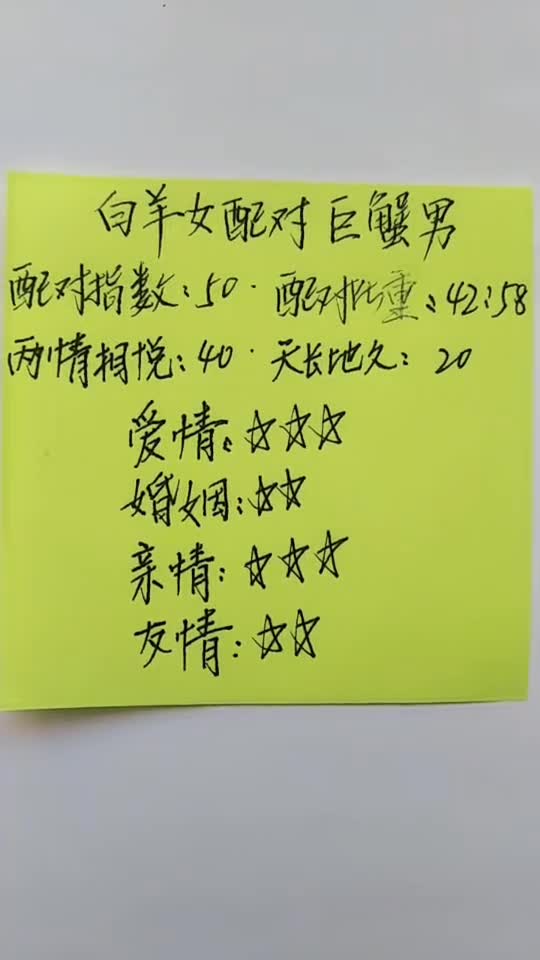 白羊女配对巨蟹男
配对指数:50·配对比重:42:58
两情相悦:40·天长地久:20
爱情:☆☆☆
婚姻:☆☆
亲情:☆☆☆
友情:☆☆